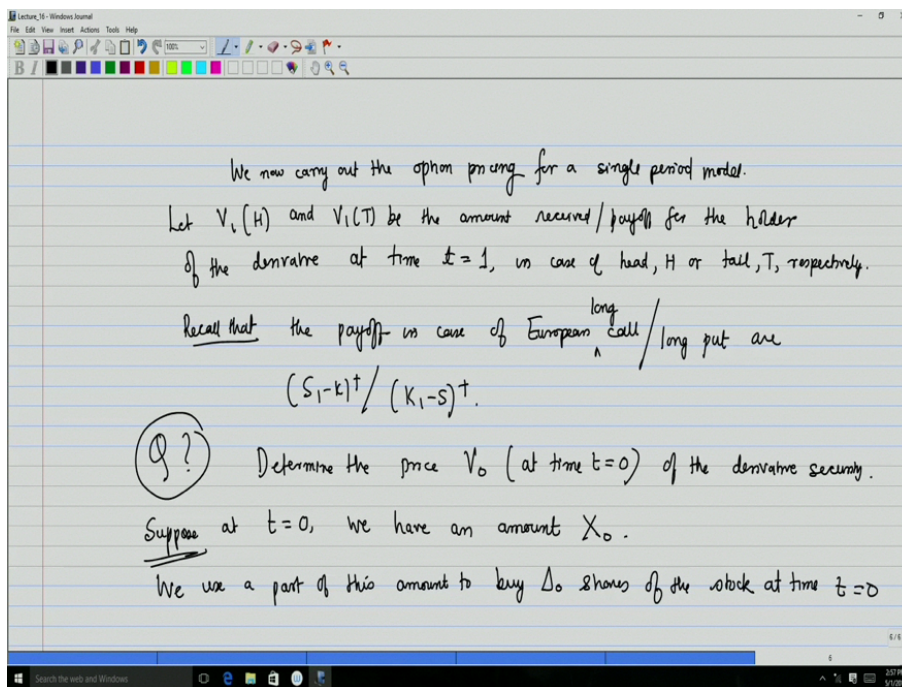 Lecture_16 - Windows Journal
File Edit View Insert Actions Tools Help
100%
B I
We now carry out the option pricing for a single period model.
Let V₁(H) and V₁(T) be the amount received/payoff for the holder
of the derivative at time t = 1, in case of head, H or tail, T, respectively.
long
Recall that the payoff in case of European ^ call / long put are
(S₁-K)⁺ / (K₁-S)⁺.
Q? Determine the price V₀ (at time t=0) of the derivative security.
Suppose at t=0, we have an amount X₀.
We use a part of this amount to buy Δ₀ shares of the stock at time t=0
6/6
6
Search the web and Windows
2:57 PM